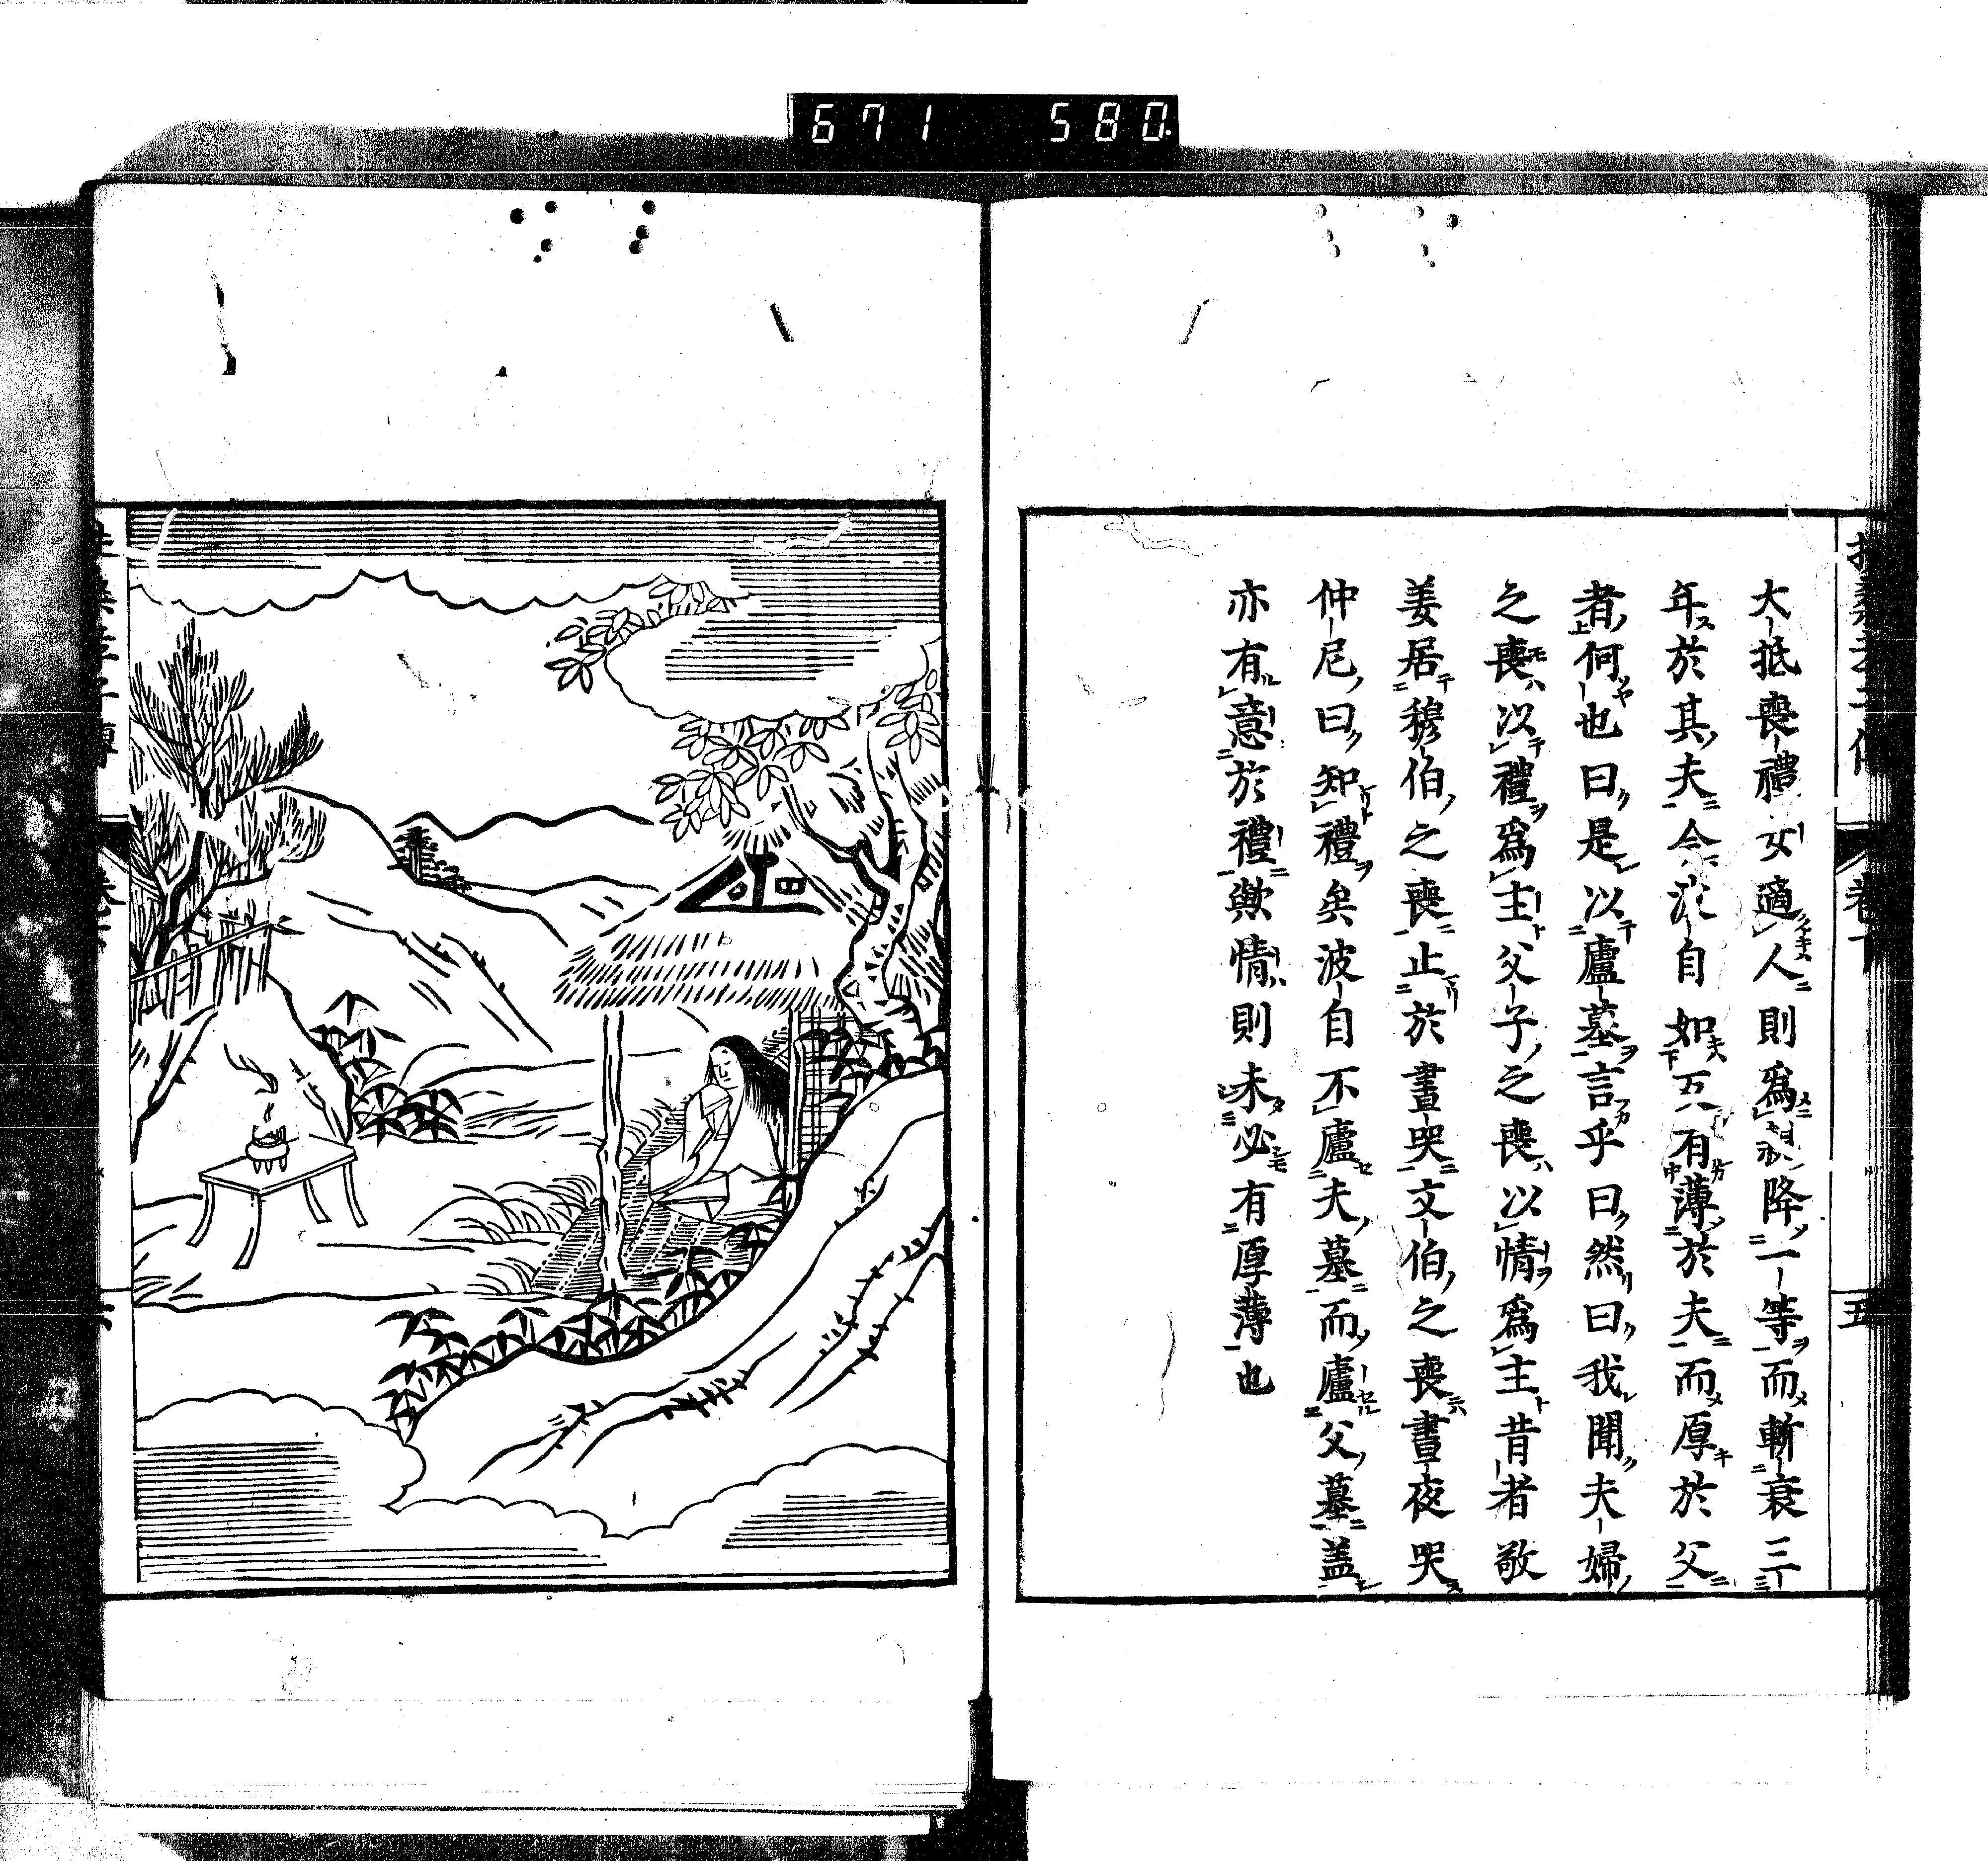 671 580
大抵喪禮女適人則爲降一等而斬衰三
年於其夫今波自如有薄於夫而厚於父
者何也曰是以廬墓言乎曰然曰我聞夫婦
之喪以禮爲主父子之喪以情爲主昔者敬
姜居穆伯之喪止於晝哭文伯之喪晝夜哭
仲尼曰知禮矣波自不廬夫墓而廬父墓盖
亦有意於禮歟情則未必有厚薄也